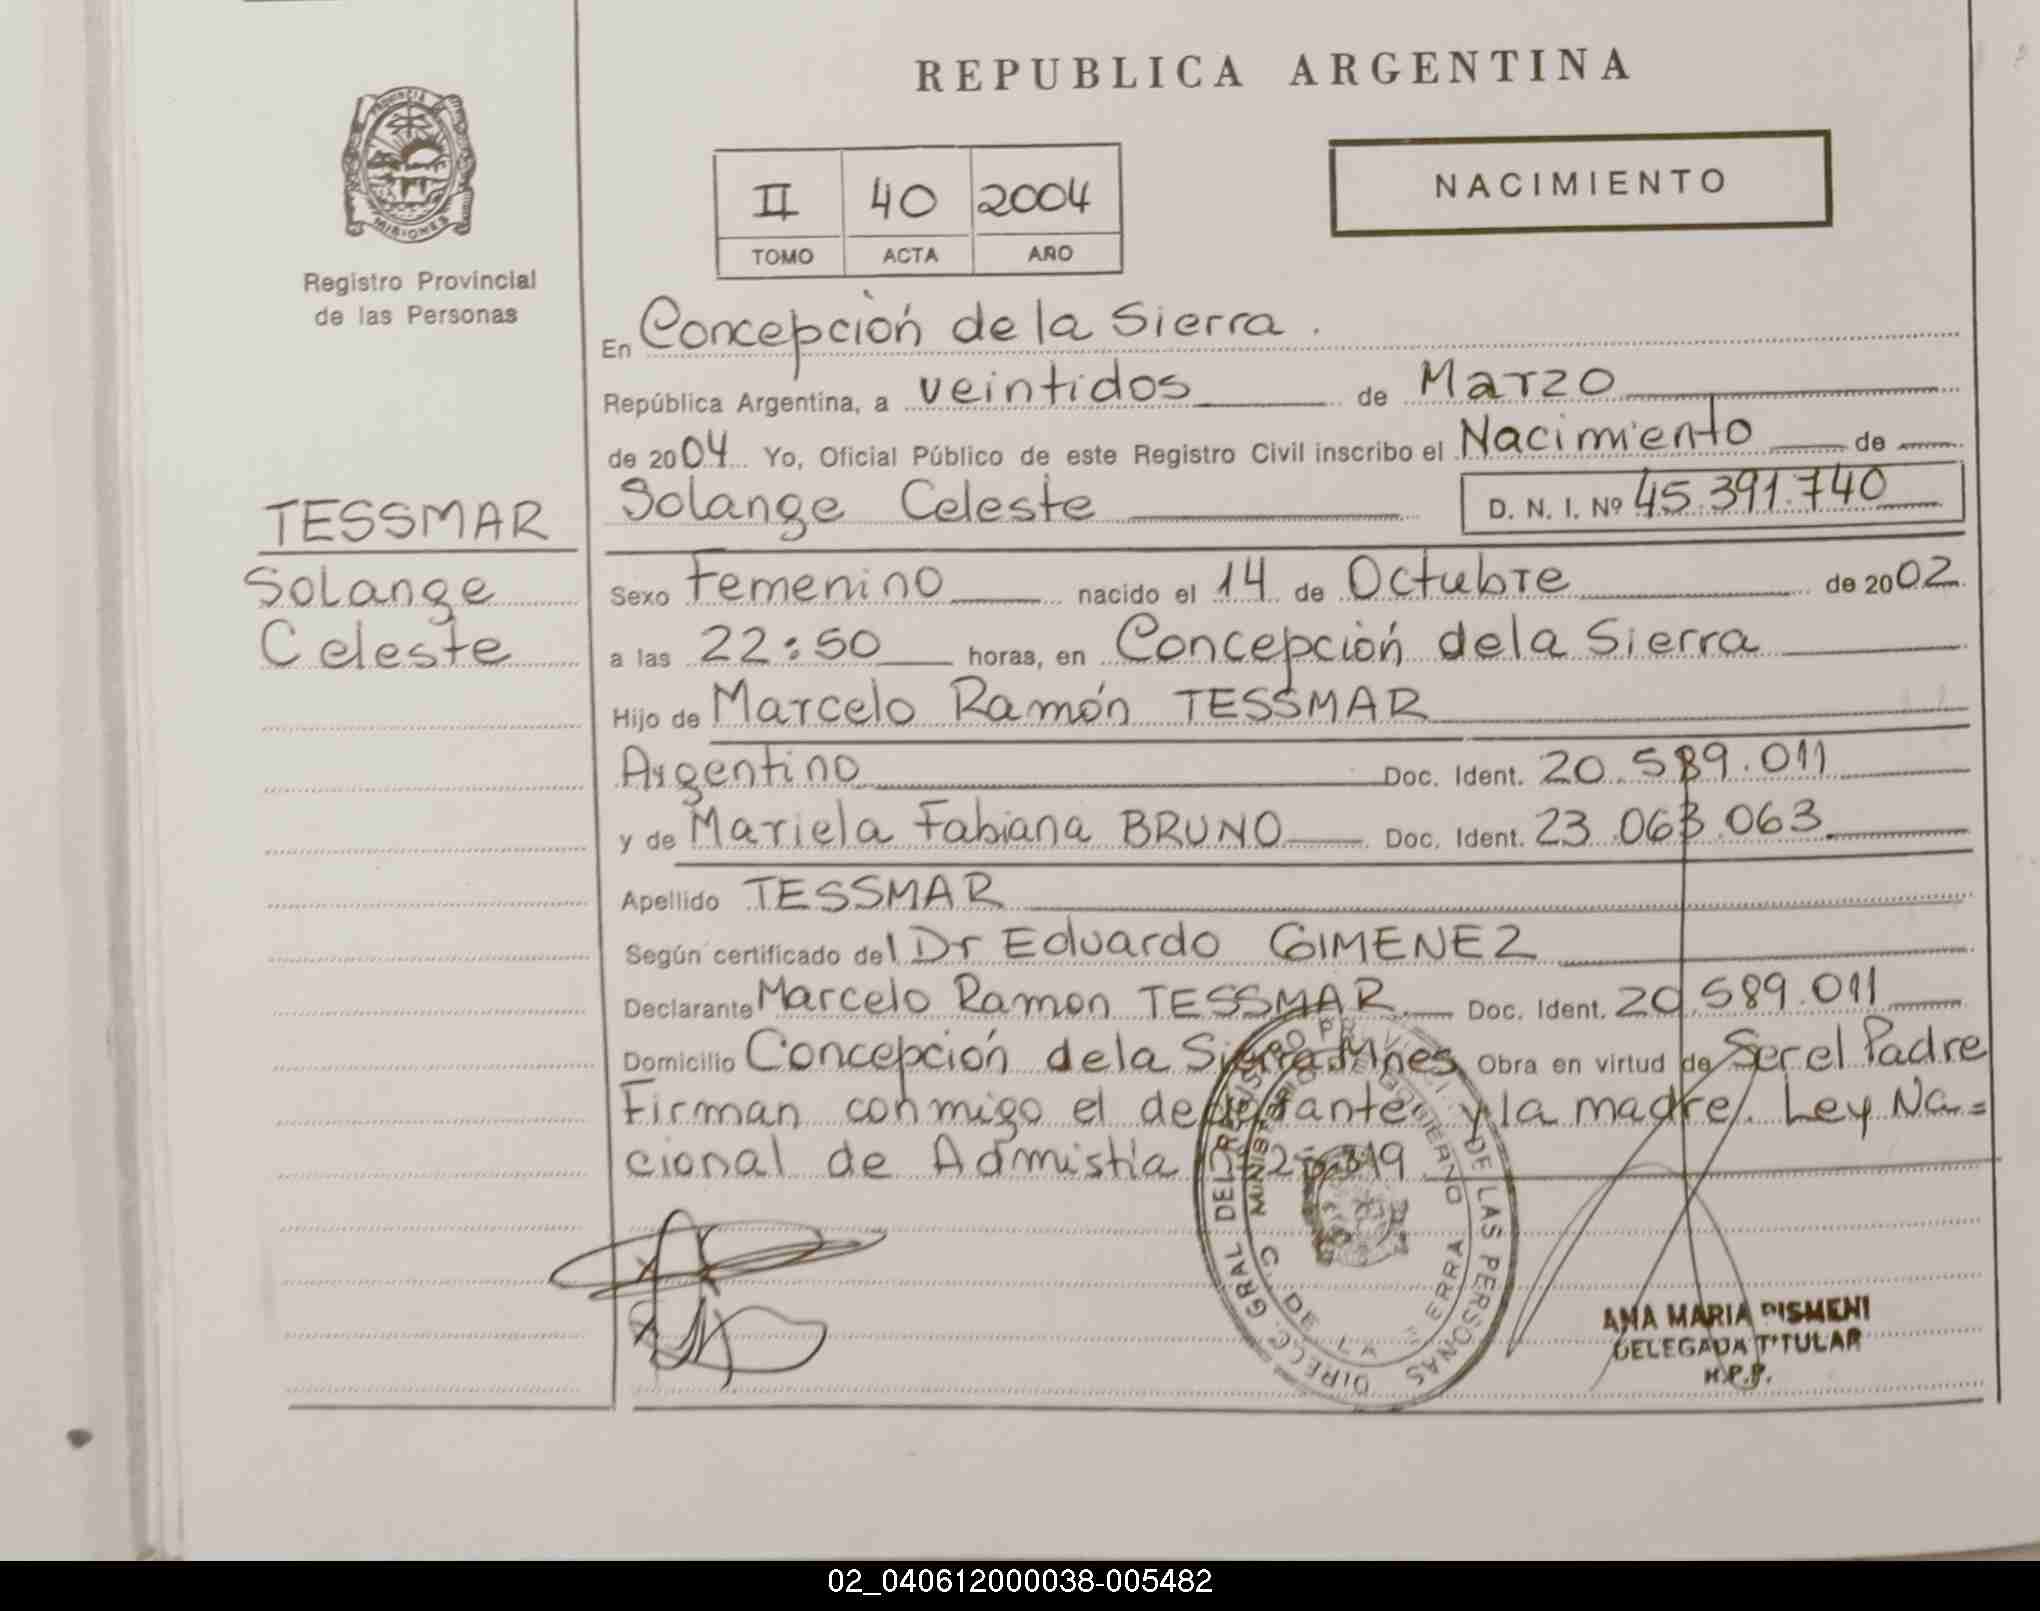 REPUBLICA ARGENTINA
PROVINCIA DE MISIONES
Registro Provincial
de las Personas
II 40 2004
TOMO ACTA AÑO
NACIMIENTO
En Concepción de la Sierra.
República Argentina, a veintidos de Marzo
de 2004 Yo, Oficial Público de este Registro Civil inscribo el Nacimiento de
Solange Celeste D. N. I. Nº 45.391.740
TESSMAR
Solange
Celeste
Sexo Femenino nacido el 14 de Octubre de 2002
a las 22:50 horas, en Concepción dela Sierra
Hijo de Marcelo Ramón TESSMAR
Argentino Doc. Ident. 20.589.011
y de Mariela Fabiana BRUNO Doc. Ident. 23.063.063
Apellido TESSMAR
Según certificado del Dr Eduardo GIMENEZ
Declarante Marcelo Ramon TESSMAR Doc. Ident. 20.589.011
Domicilio Concepción dela Sierra Mnes Obra en virtud de Ser el Padre
Firman conmigo el declarante y la madre. Ley Na=
cional de Admistía
DIRECC. GRAL DEL REGISTRO PROVINCIAL DE LAS PERSONAS
MINISTERIO DE GOBIERNO
C. DE LA SIERRA
ANA MARIA PISMENI
DELEGADA TITULAR
R.P.P.
02_040612000038-005482